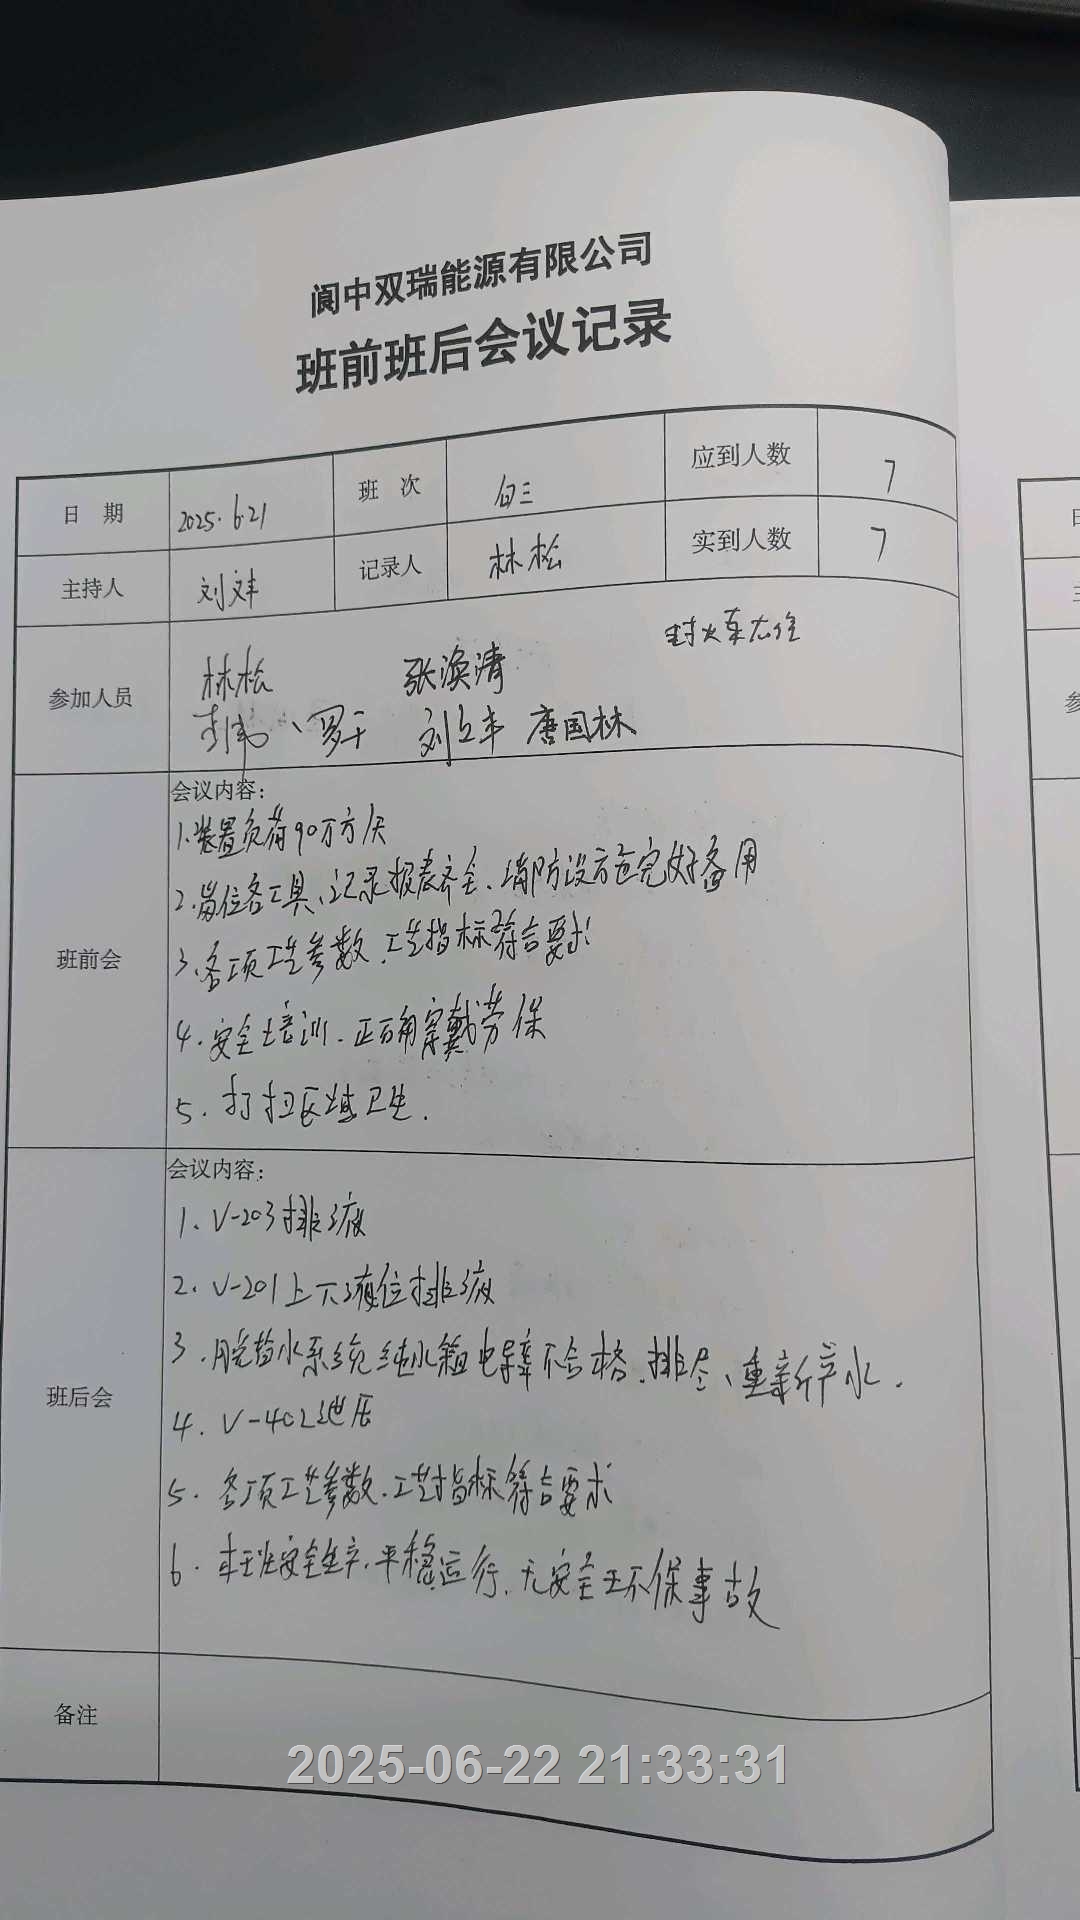 阆中双瑞能源有限公司
班前班后会议记录
日 期 2025.6.21 班 次 白三 应到人数 7
主持人 刘文丰 记录人 林松 实到人数 7
参加人员
林松 张涣清
罗干 唐国林
班前会
会议内容：
1.装置负荷90万方/天
2.岗位各工具、记录报表齐全、消防设施完好备用
3.各项工艺参数、工艺指标符合要求
4.安全培训、正确穿戴劳保
5.打扫区域卫生.
班后会
会议内容：
1、V-203排液
2.V-201上下液位排液
3.脱盐水系统纯水箱电导率不合格、排尽、重新产水.
4.V-402泄压
5.各项工艺参数、工艺指标符合要求
6.本班安全生产、平稳运行、无安全环保事故
备注
2025-06-22 21:33:31